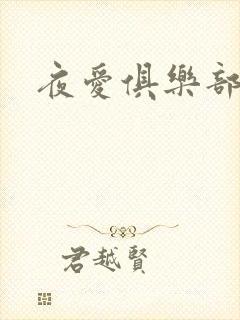 夜愛俱樂部
君越賢